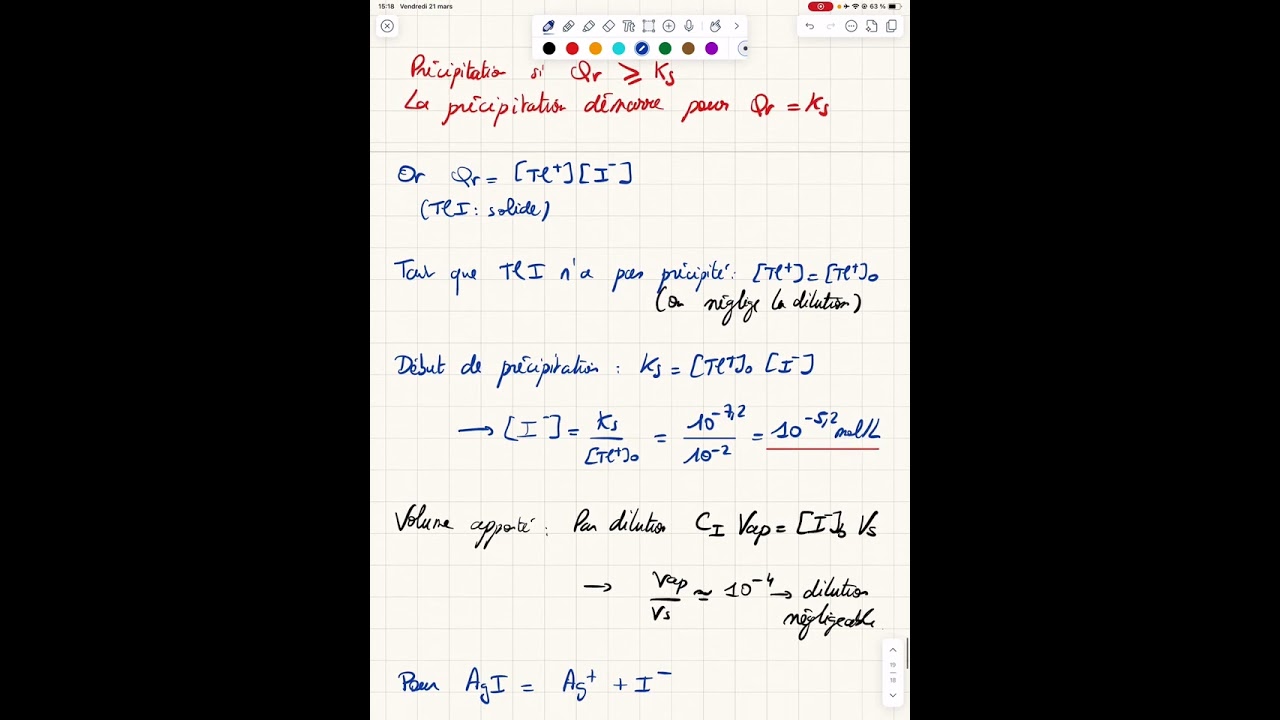 15:18 Vendredi 21 mars 63 %
Précipitation si Qr ⩾ Ks
La précipitation démarre pour Qr = Ks
Or Qr = [Tl⁺][I⁻]
(TlI : solide)
Tant que TlI n'a pas précipité : [Tl⁺] = [Tl⁺]₀
(on néglige la dilution)
Début de précipitation : Ks = [Tl⁺]₀ [I⁻]
→ [I⁻] = Ks/[Tl⁺]₀ = 10^-7,2/10^-2 = 10^-5,2 mol/L
Volume apporté : Par dilution C_I Vap = [I⁻]₀ Vs
→ Vap/Vs ≃ 10^-4 → dilution
négligeable
Pour AgI = Ag⁺ + I⁻
19
18